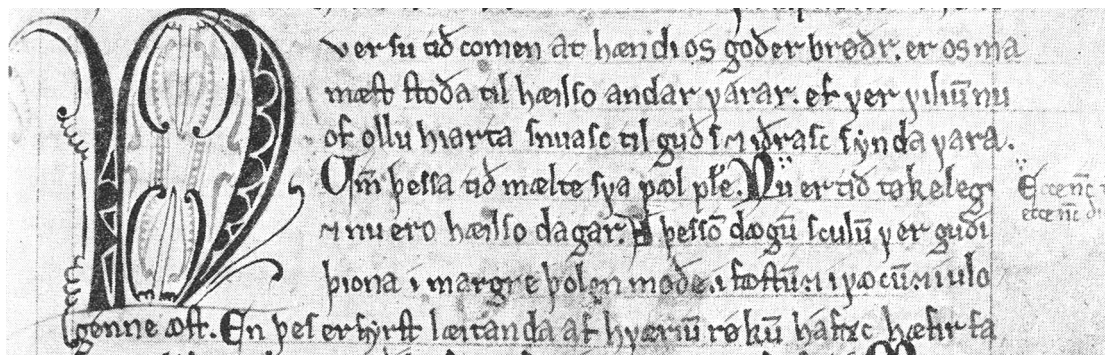 ver su tið comen at hændi os goðer brøðr. er os ma
mæst stoða til hæilso andar varar. ef ver viliū nu
of ollu hiarta snuasc til guðs ⁊ iðrasc synda vara.
Om̄ þessa tið mælte sva pæl pſ̄e. Nu er tið takeleg
⁊ nu ero hæilso dagar. Þessō dægū sculū ver guði
þiona i margre þolen mœðe. i fæstū ⁊ i væcū ⁊ i ulo
genne æst. En þes er fyrst læitanda af hværiū røkū hafizc hæfir fa
Ecce nc̄
ecce nc̄ di